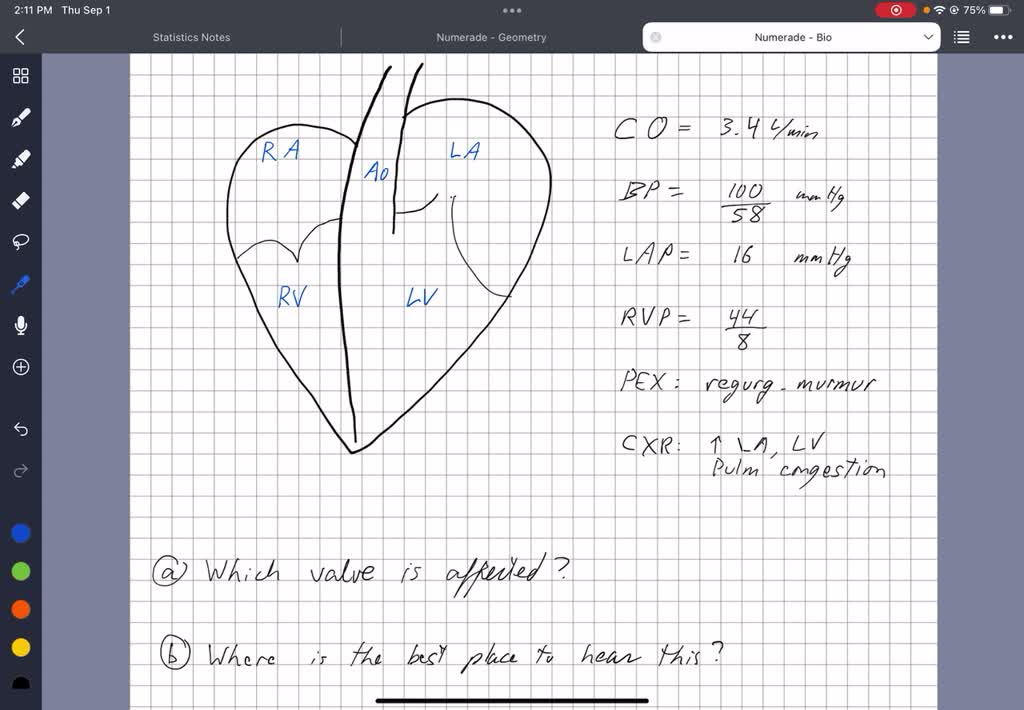 2:11 PM Thu Sep 1
75%
Statistics Notes
Numerade - Geometry
Numerade - Bio
RA
Ao
LA
RV
LV
CO = 3.4 L/min
BP = 100/58 mmHg
LAP = 16 mmHg
RVP = 44/8
PEX: regurg. murmur
CXR: ↑ LA, LV
Pulm congestion
(a) Which valve is affected?
(b) Where is the best place to hear this?